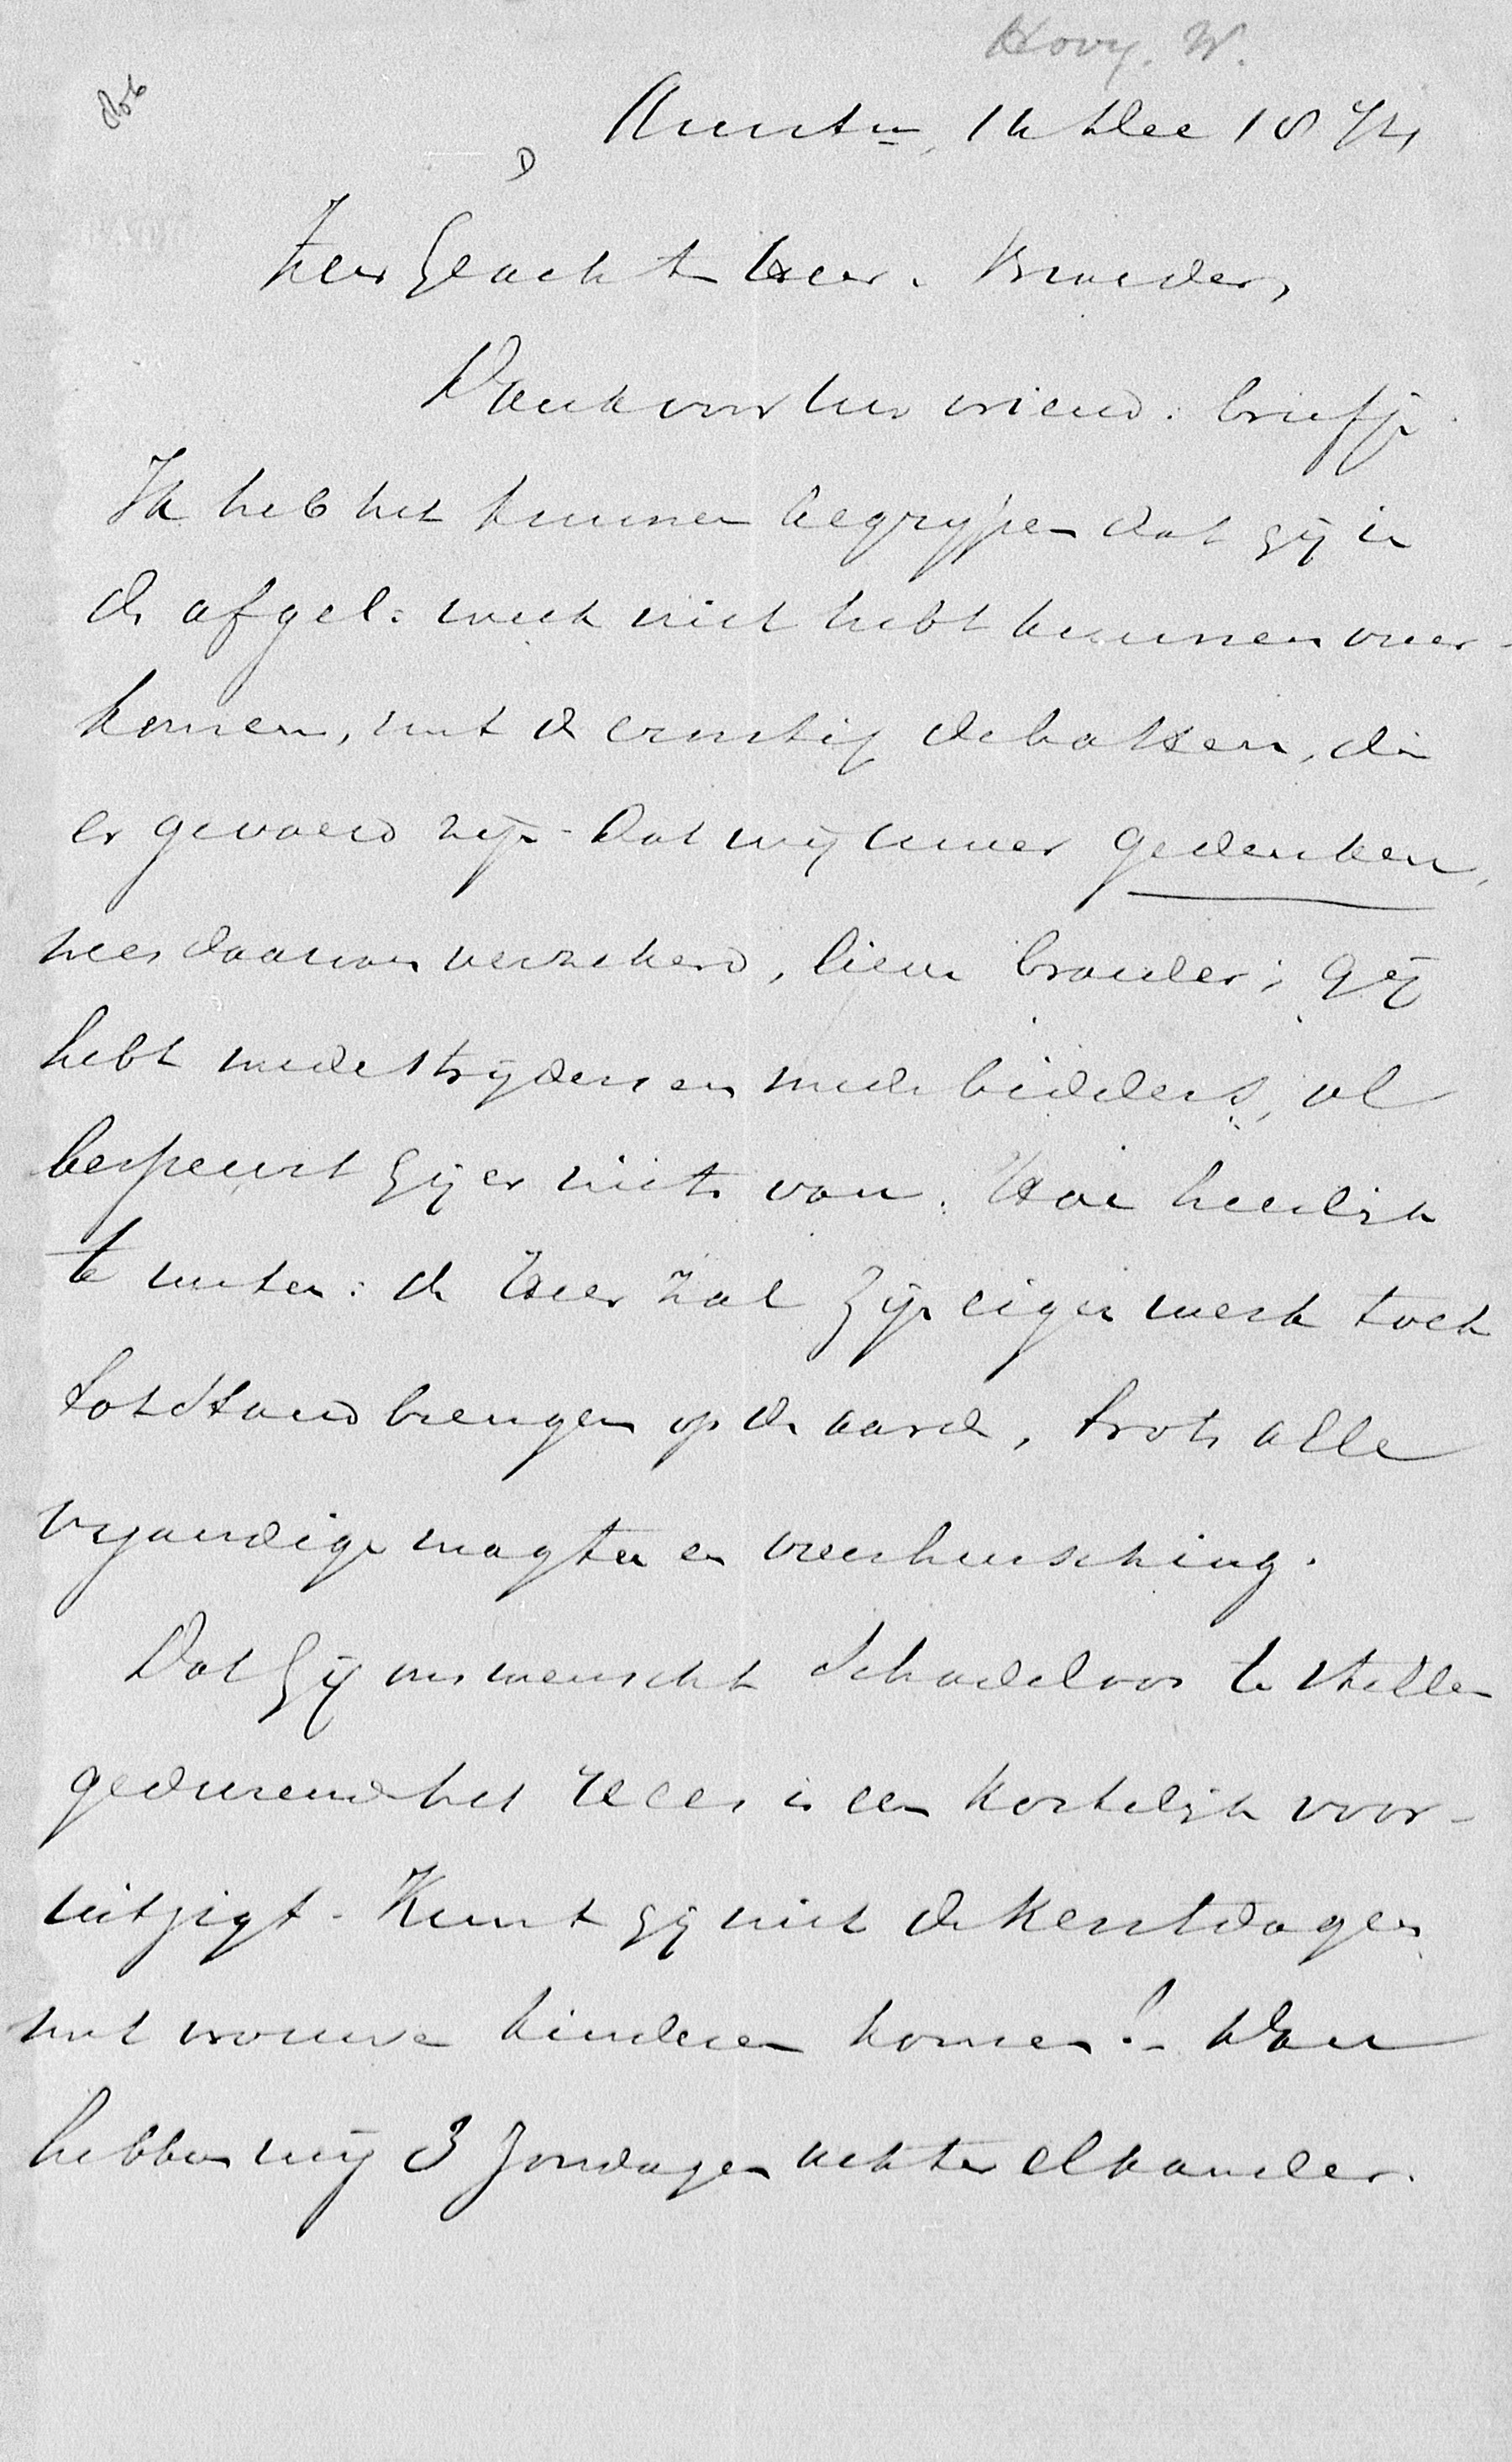 Hovy. W.
Amstm, 14 Dec 1874
Zeer Geachte Heer. Broeder,
Dank voor uw vriend: briefje
Ik heb het kunnen begrijpen dat gij in
de afgel: week niet hebt kunnen over-
komen, met de ernstige debatten, die
er gevoerd zijn - Dat wij uwer gedenken,
wees daarvan verzekerd, lieve broeder; gij
hebt medestrijders en medebidders, al
bespeurt gij er niets van. Hoe heerlijk
te weten: de Heer zal Zijn eigen werk toch
tot stand brengen op de aarde, trots alle
vijandige magten en overheersching.
Dat Gij ons wenscht schadeloos te stellen
gedurende het reces is een kostelijk voor-
uitzigt - Kunt gij niet de Kerstdagen
met vrouw en kinderen komen? - Dan
hebben wij 3 Zondagen achter elkander.